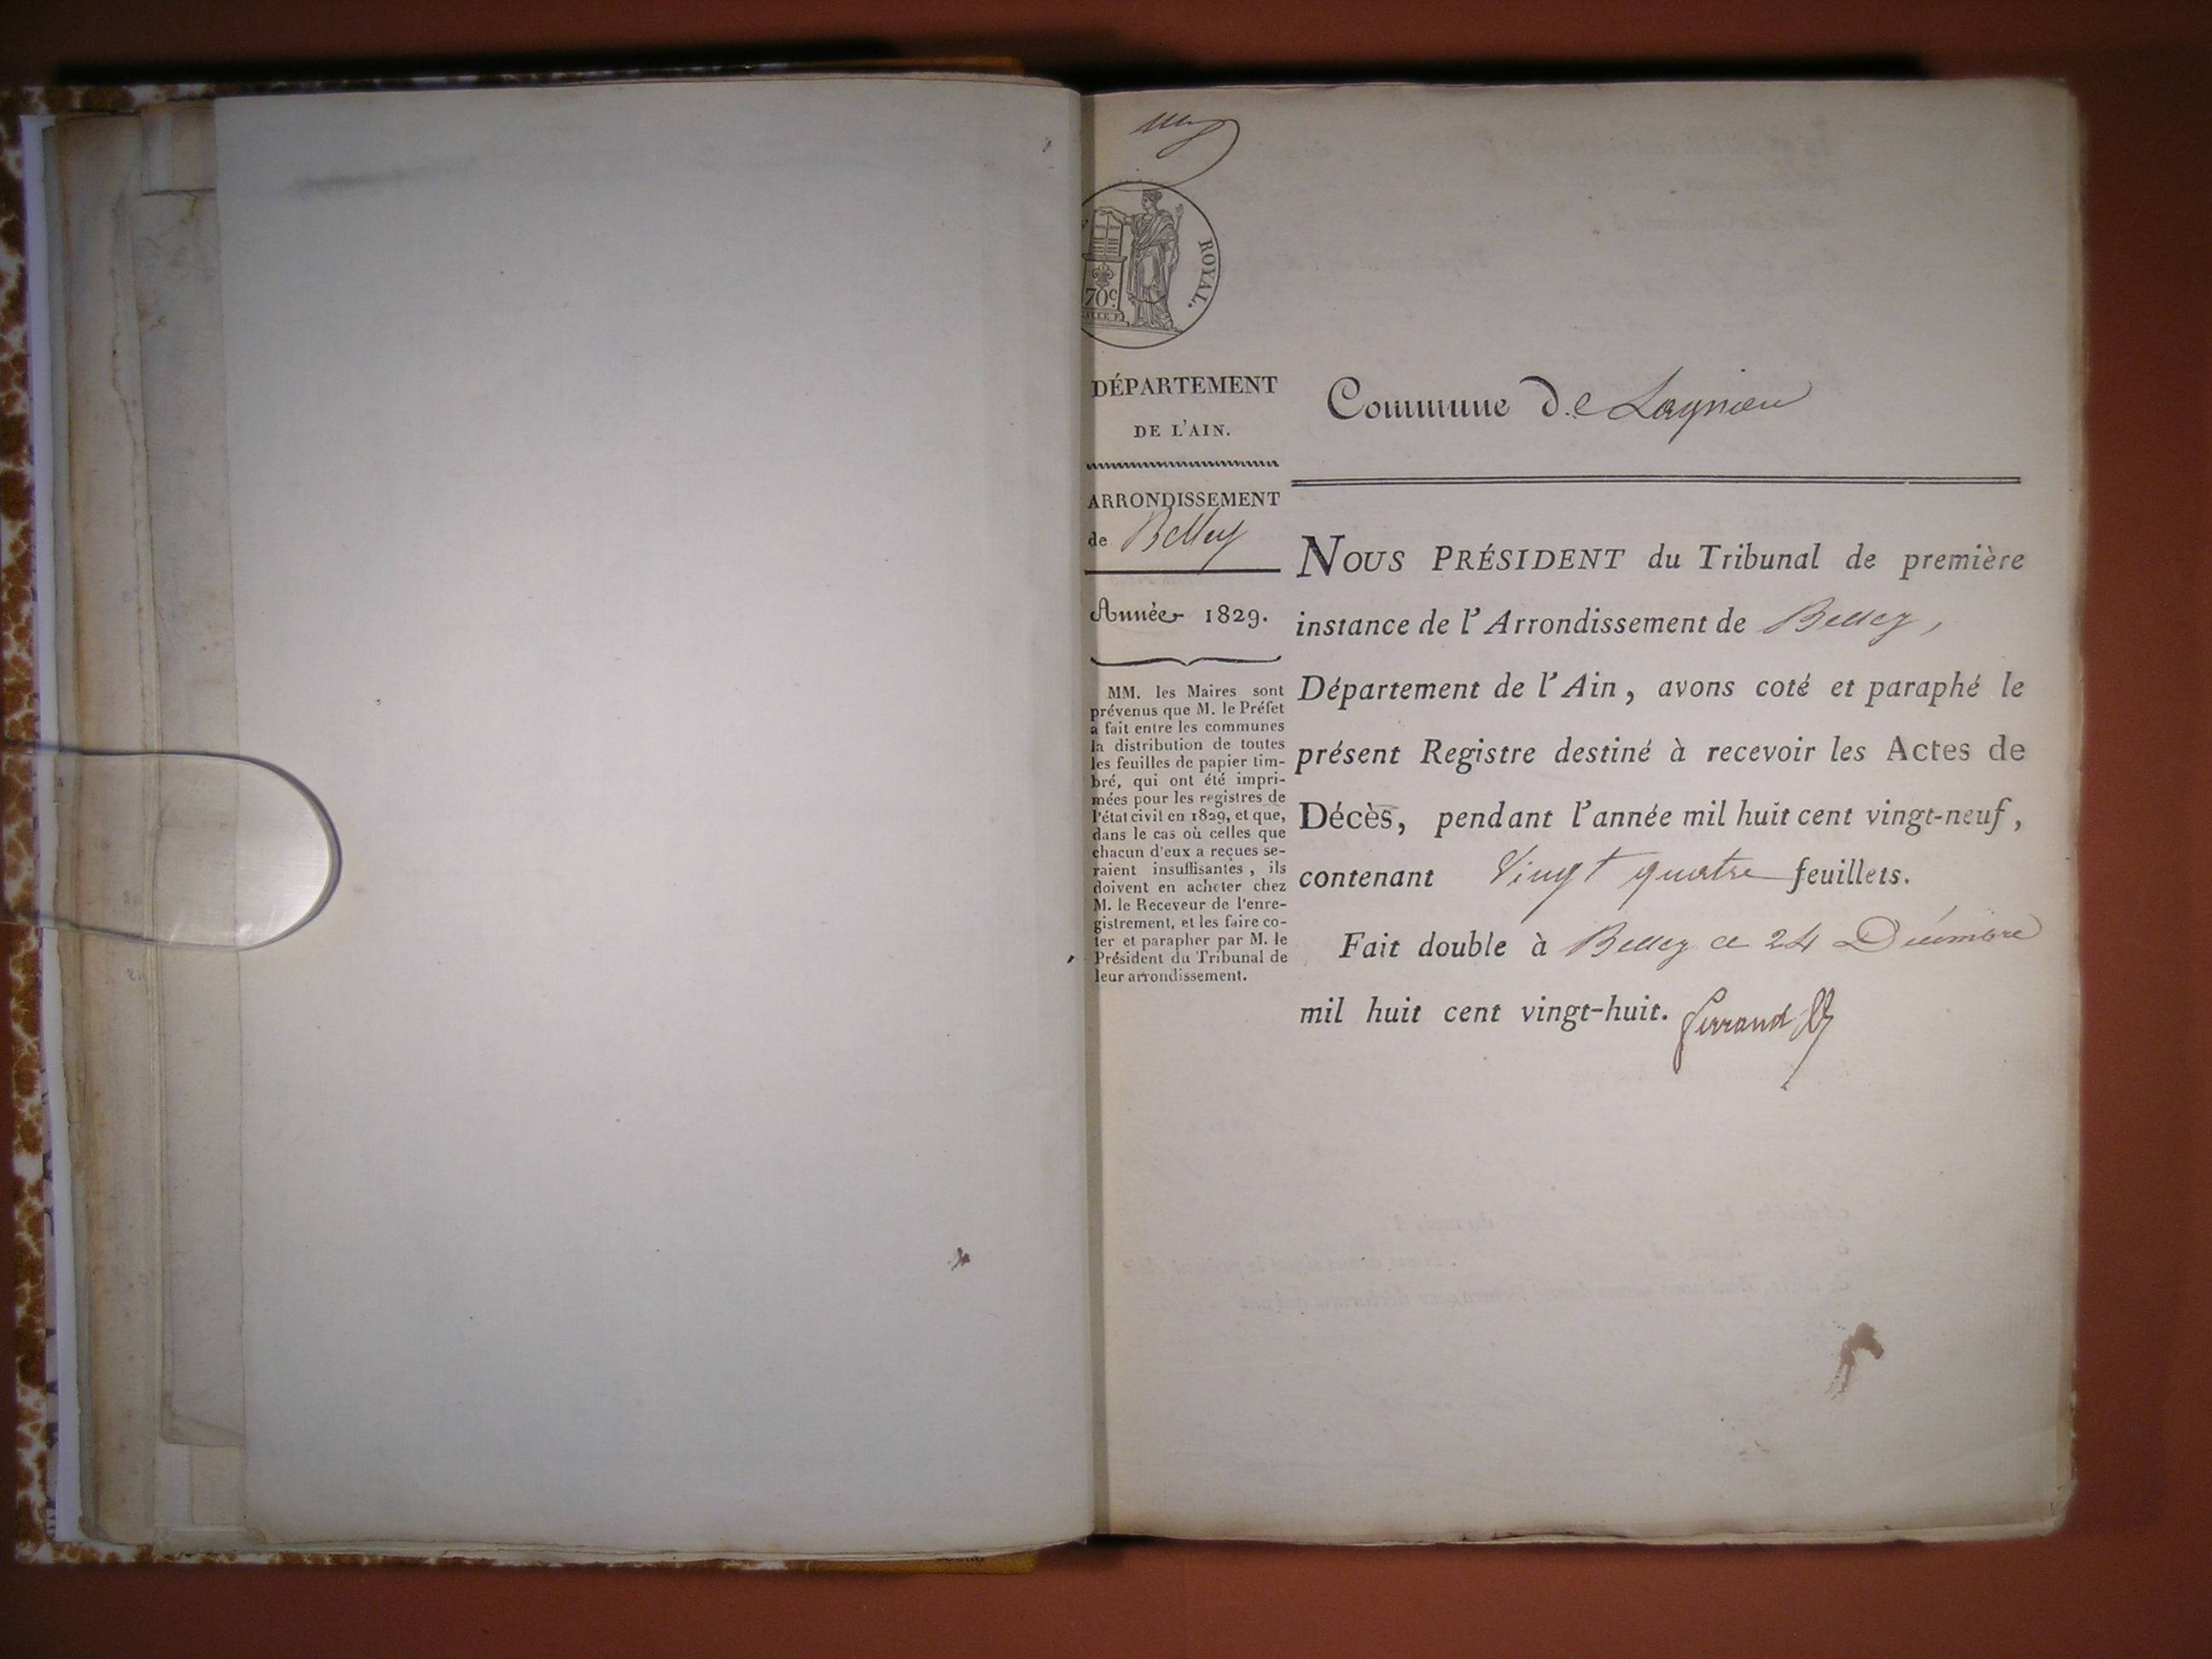 ROYAL.
70c
DÉPARTEMENT
DE L'AIN.
ARRONDISSEMENT
de Belley
Année 1829.
MM. les Maires sont
prévenus que M. le Préfet
a fait entre les communes
la distribution de toutes
les feuilles de papier tim-
bré, qui ont été impri-
mées pour les registres de
l'état civil en 1829, et que,
dans le cas où celles que
chacun d'eux a reçues se-
raient insuffisantes, ils
doivent en acheter chez
M. le Receveur de l'enre-
gistrement, et les faire co-
ter et parapher par M. le
Président du Tribunal de
leur arrondissement.
Commune de Lagnieu
NOUS PRÉSIDENT du Tribunal de première
instance de l'Arrondissement de Belley,
Département de l'Ain, avons coté et paraphé le
présent Registre destiné à recevoir les Actes de
Décès, pendant l'année mil huit cent vingt-neuf,
contenant Vingt quatre feuillets.
Fait double à Belley ce 24 Décembre
mil huit cent vingt-huit.